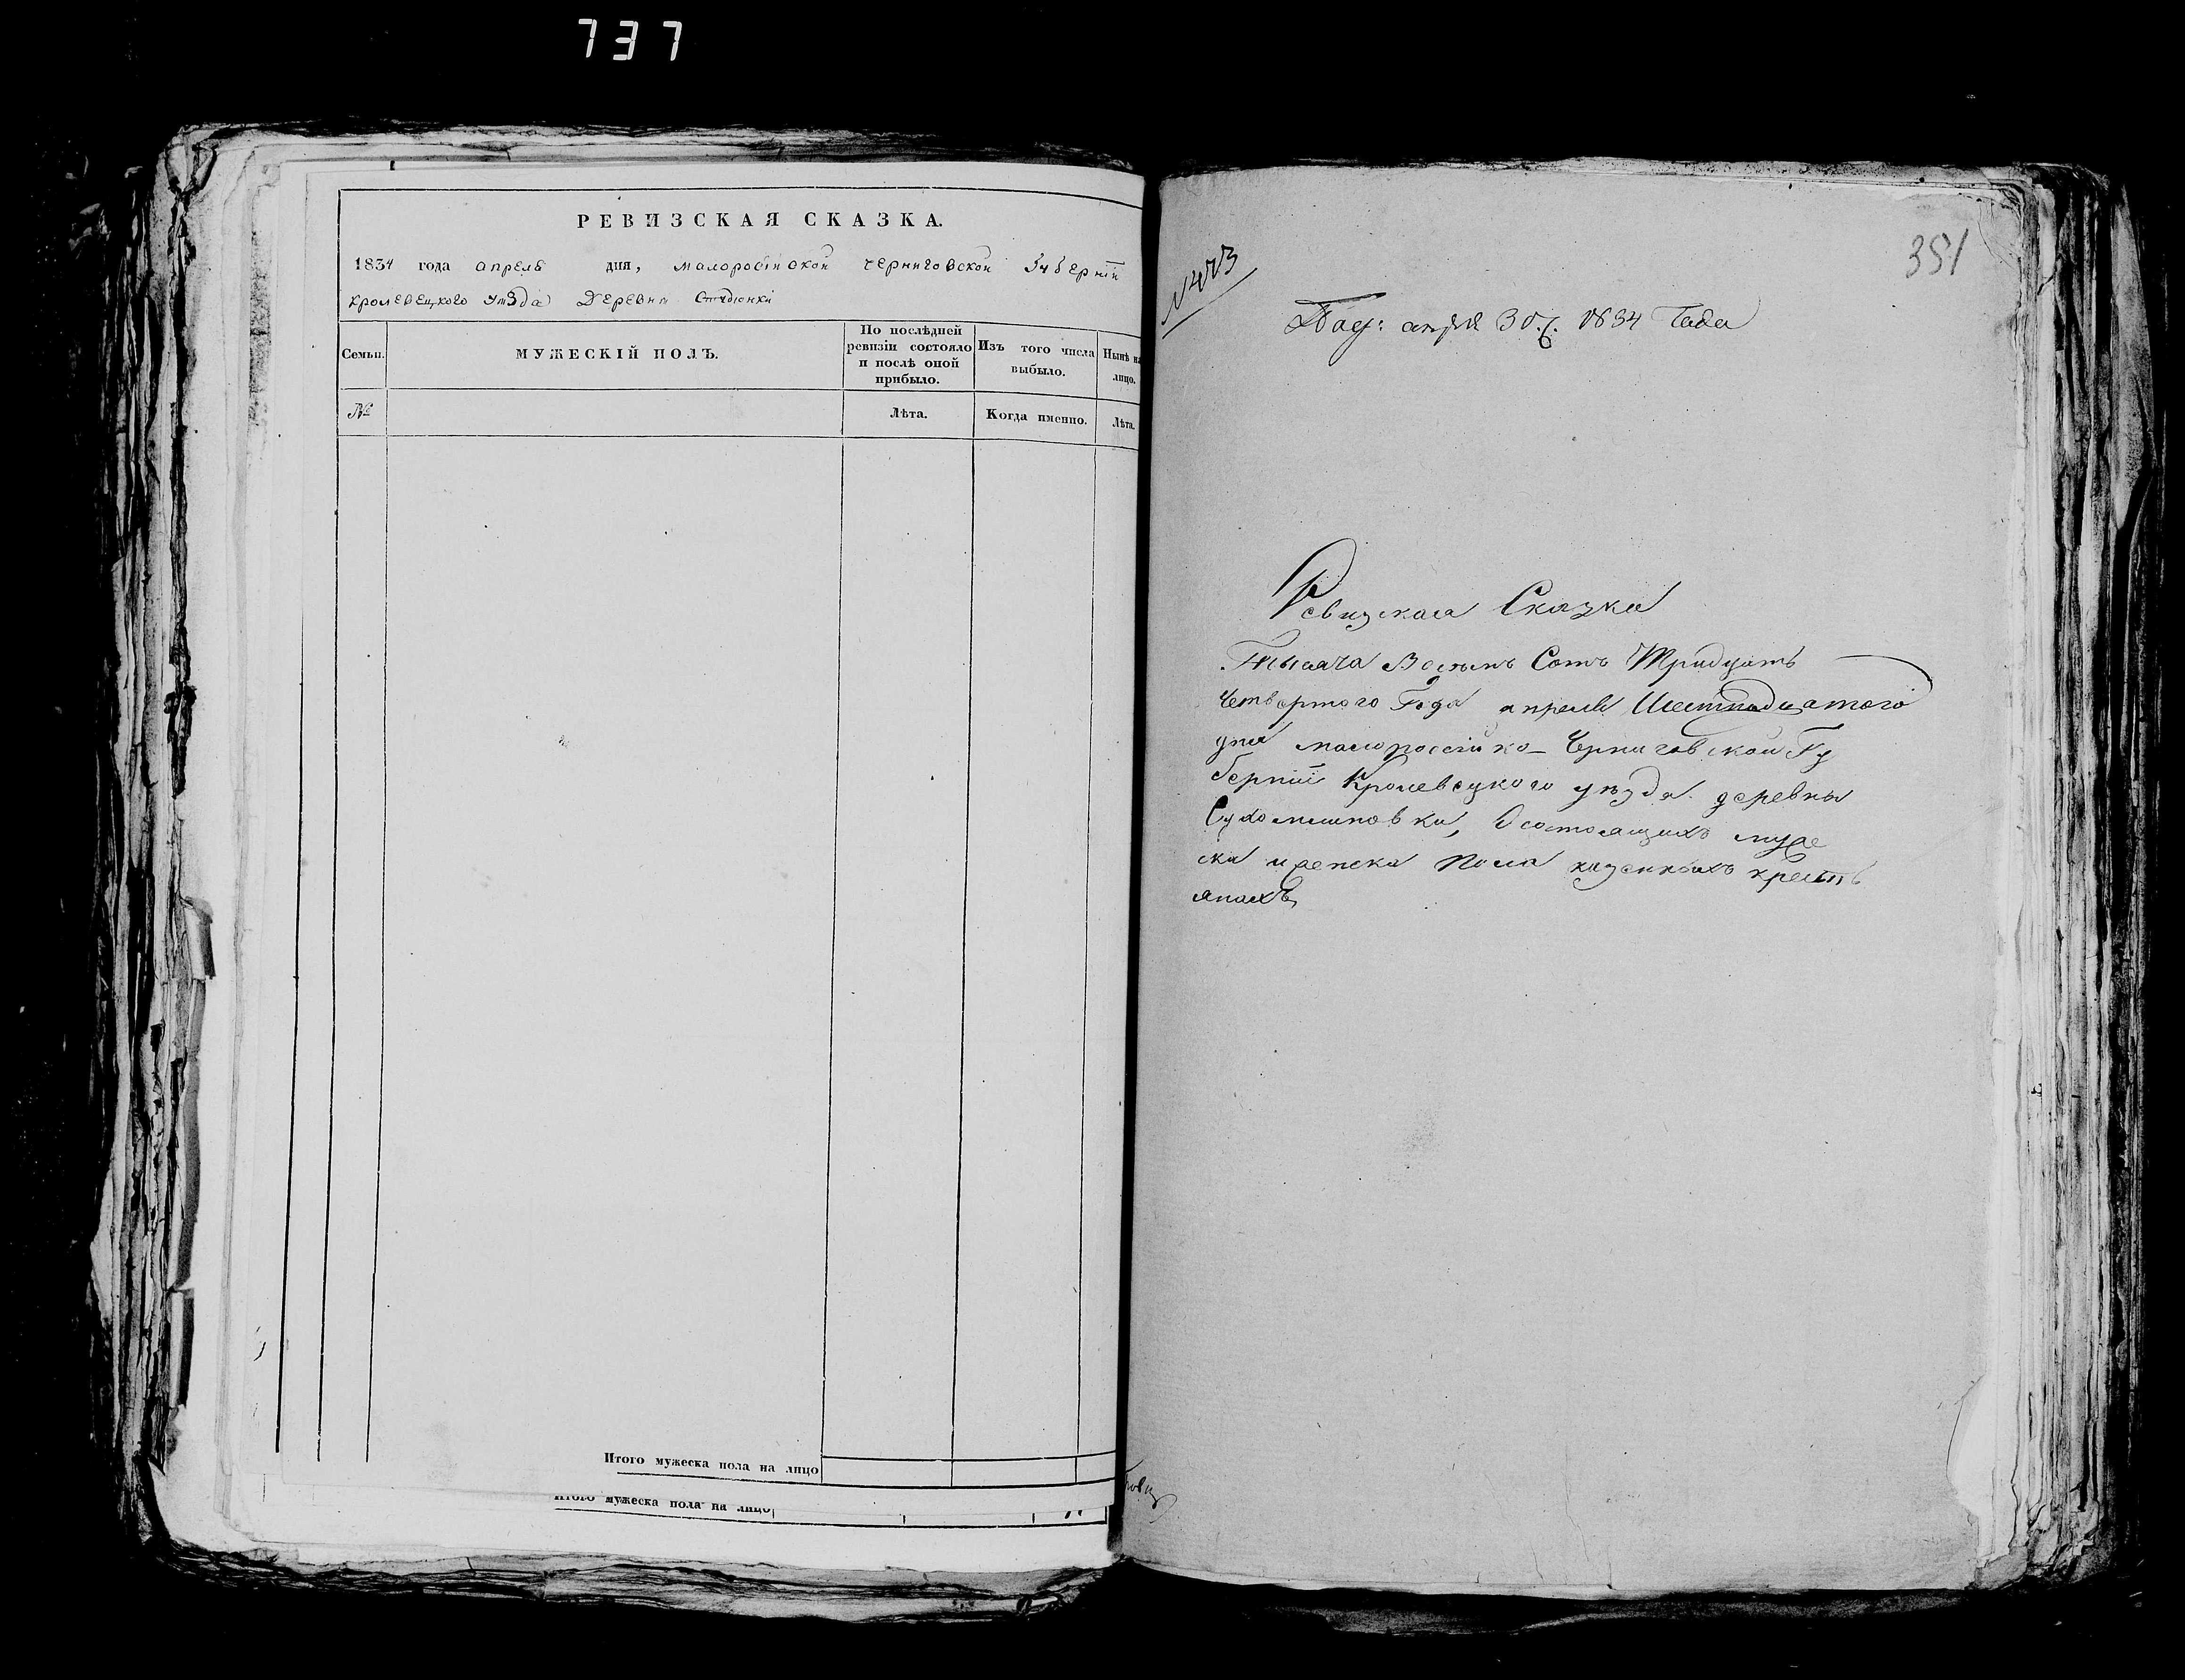 737
РЕВИЗСКАЯ СКАЗКА.
1834 года апреля дня, малоросiйской черниговской губернiи
кролевецкого уезда деревни Студюнки
Семьи.
МУЖЕСКIЙ ПОЛЪ.
По послѣдней
ревизiи состояло
и послѣ оной
прибыло.
Изъ того числа
выбыло.
Нынѣ на
лицо.
№
Лѣта.
Когда именно.
Лѣта.
Итого мужеска пола на лицо
Итого мужеска пола на лицо
351
апреля 30. 1834 Года
Ревизская Сказка
Тысяча Восемь Сотъ Тридцать
Четвертого Года апреля Шестнадцатого
дня малороссiйско-Черниговской Гу
бернiи Кролевецкого уезда деревны
Сухомлиновки, Осостоящихъ муже
ска иженска Пола казенныхъ крестъ
янахъ